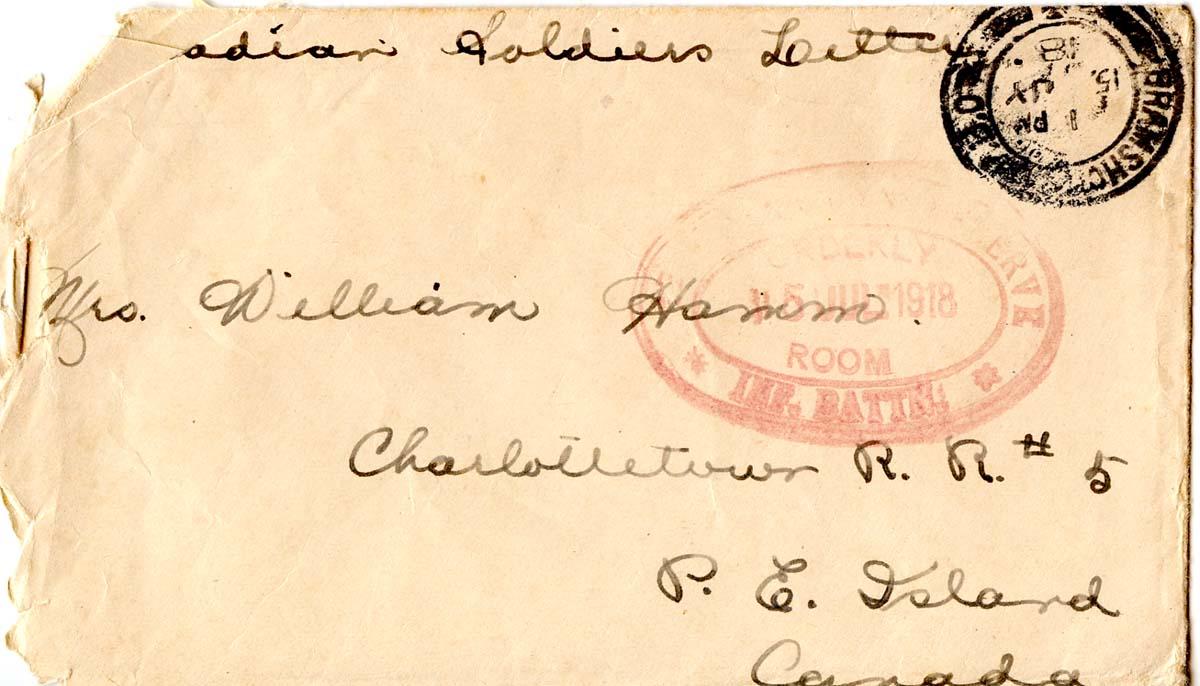 adian Soldiers Letter
BRAMSHO
1 PM
15 JY
18
ERVE
ORDERLY
15 JUL 1918
ROOM
* INF. BATTN. *
Mrs. William Hamm.
Charlottetown R. R. # 5
P. E. Island
Canada